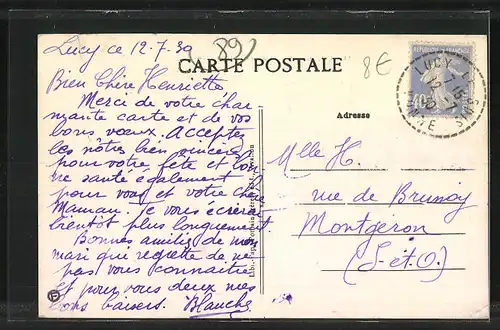 Lucy ce 12-7-39
89)
8€
CARTE POSTALE
Bien Chère Henriette
Merci de votre char
mante carte et de vos
bons voeux. Acceptez
les nôtres bien sincères
pour votre fête et bon
ne santé également
pour vous et votre chère
Maman. Je vous écrirai
bientôt plus longuement.
Bonnes amitiés de mon
mari qui regrette de ne
pas vous connaitre
et pour vous deux mes
bons baisers. Blanche
Adresse
Mlle H.
rue de Brunoy
Montgeron
(S-et-O.)
REPUBLIQUE FRANÇAISE
LUCY